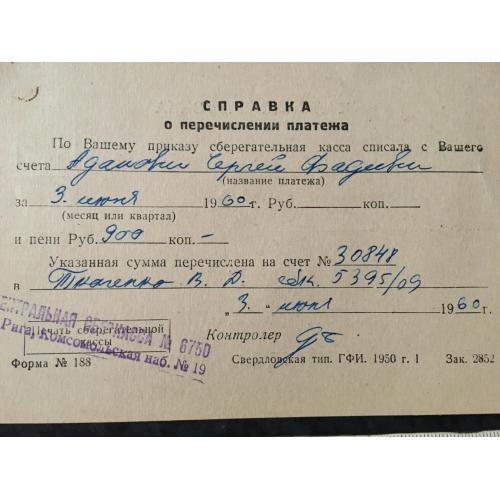 СПРАВКА
о перечислении платежа
По Вашему приказу сберегательная касса списала с Вашего
счета Адамович Сергей Фадеевич
(название платежа)
за 3. июня 1960 г. Руб. коп.
(месяц или квартал)
и пени Руб. 900 коп. –
Указанная сумма перечислена на счет № 30848
в Ткаченко В. Д. 5395/09
„ 3. “ июня 1960 г.
ЦЕНТРАЛЬНАЯ СБЕРКАССА № 6750
Рига, Комсомольская наб. № 19
Печать сберегательной
кассы
Контролер
Форма № 188 Свердловская тип. ГФИ. 1950 г. 1 Зак. 2852